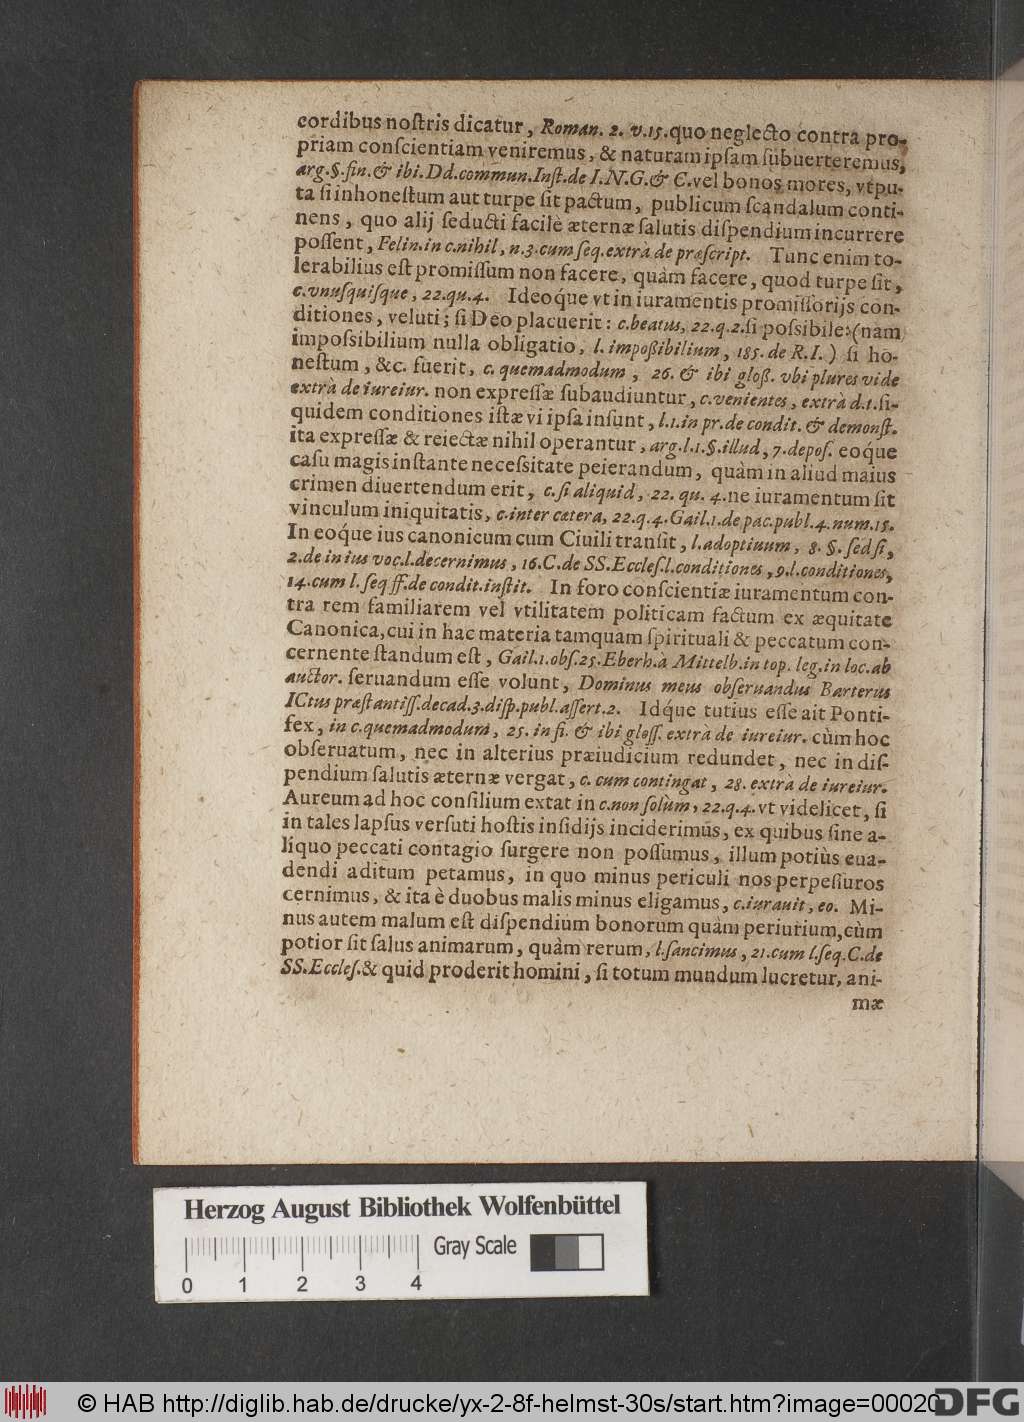 cordibus noſtris dicatur, Roman. 2. v.15. quo neglecto contra pro-
priam conſcientiam veniremus, & naturam ipſam ſubuerteremus,
arg.§.fin.& ibi.Dd.commun.Inſt.de I.N.G.& C.vel bonos mores, vtpu-
ta ſi inhoneſtum aut turpe ſit pactum, publicum ſcandalum conti-
nens, quo alij ſeducti facilè æternæ ſalutis diſpendium incurrere
poſſent, Felin.in c.nihil, n.3.cum ſeq.extrà de præſcript. Tunc enim to-
lerabilius eſt promiſſum non facere, quàm facere, quod turpe ſit,
c.vnuſquiſque, 22.qu.4. Ideoq́ue vt in iuramentis promiſſorijs con-
ditiones, veluti; ſi Deo placuerit: c.beatus, 22.q.2.ſi poſsibile:(nam
impoſsibilium nulla obligatio, l. impoßibilium, 185. de R.I.) ſi ho-
neſtum, &c. fuerit, c. quemadmodum, 26. & ibi gloß. vbi plures vide
extrà de iureiur. non expreſſæ ſubaudiuntur, c.venientes, extrà d.t.ſi-
quidem conditiones iſtæ vi ipſa inſunt, l.1.in pr.de condit. & demonſt.
ita expreſſæ & reiectæ nihil operantur, arg.l.1.§.illud, 7.depoſ. eoq́ue
caſu magis inſtante neceſsitate peierandum, quàm in aliud maius
crimen diuertendum erit, c.ſi aliquid, 22. qu. 4.ne iuramentum ſit
vinculum iniquitatis, c.inter cætera, 22.q.4.Gail.1.de pac.publ.4.num.15.
In eoq́ue ius canonicum cum Ciuili tranſit, l.adoptiuum, 8. §. ſed ſi,
2.de in ius voc.l.decernimus, 16.C.de SS.Eccleſ.l.conditiones, 9.l.conditiones,
14.cum l.ſeq ff.de condit.inſtit. In foro conſcientiæ iuramentum con-
tra rem familiarem vel vtilitatem politicam factum ex æquitate
Canonica, cui in hac materia tamquam ſpirituali & peccatum con-
cernente ſtandum eſt, Gail.1.obſ.25.Eberh.à Mittelb.in top. leg.in loc.ab
auctor. ſeruandum eſſe volunt, Dominus meus obſeruandus Barterus
ICtus præſtantiſſ.decad.3.diſp.publ.aſſert.2. Idq́ue tutius eſſe ait Ponti-
fex, in c.quemadmodum, 25. in fi. & ibi gloſſ. extrà de iureiur. cùm hoc
obſeruatum, nec in alterius præiudicium redundet, nec in diſ-
pendium ſalutis æternæ vergat, c. cum contingat, 28. extrà de iureiur.
Aureum ad hoc conſilium extat in c.non ſolùm, 22.q.4. vt videlicet, ſi
in tales lapſus verſuti hoſtis inſidijs inciderimus, ex quibus ſine a-
liquo peccati contagio ſurgere non poſſumus, illum potiùs eua-
dendi aditum petamus, in quo minus periculi nos perpeſſuros
cernimus, & ita è duobus malis minus eligamus, c.iurauit, eo. Mi-
nus autem malum eſt diſpendium bonorum quàm periurium, cùm
potior ſit ſalus animarum, quàm rerum, l.ſancimus, 21.cum l.ſeq.C.de
SS.Eccleſ.& quid proderit homini, ſi totum mundum lucretur, ani-
mæ
Herzog August Bibliothek Wolfenbüttel
Gray Scale
0 1 2 3 4
© HAB http://diglib.hab.de/drucke/yx-2-8f-helmst-30s/start.htm?image=00020
DFG